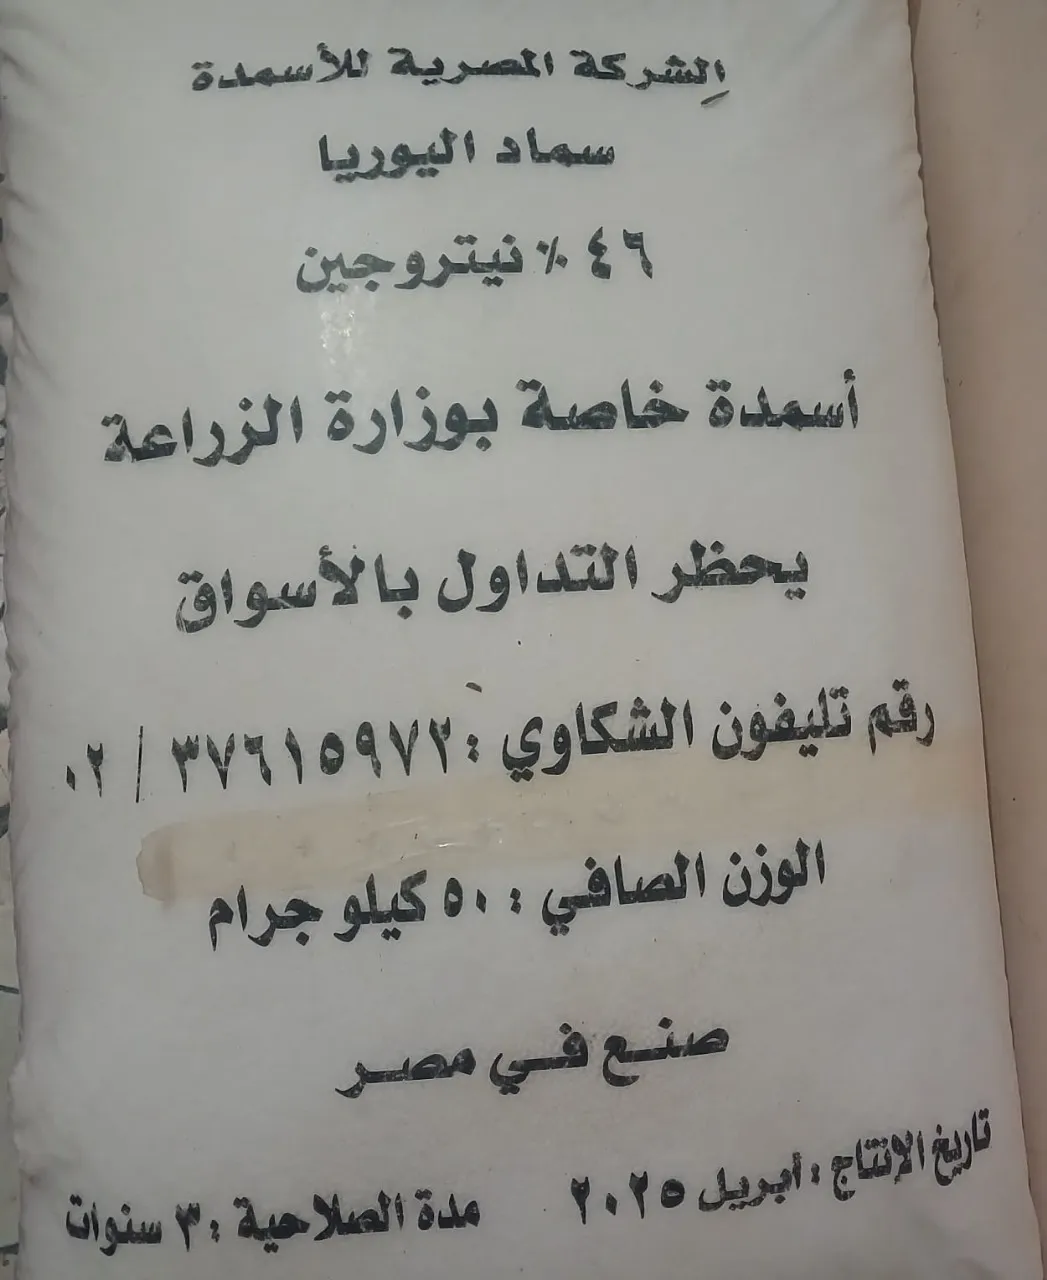 الشركة المصرية للأسمدة
سماد اليوريا
٤٦ % نيتروجين
أسمدة خاصة بوزارة الزراعة
يحظر التداول بالأسواق
رقم تليفون الشكاوي : ٣٧٦١٥٩٧٢ / ٠٢
الوزن الصافي : ٥٠ كيلو جرام
صنع في مصر
تاريخ الإنتاج : أبريل ٢٠٢٥ مدة الصلاحية : ٣ سنوات